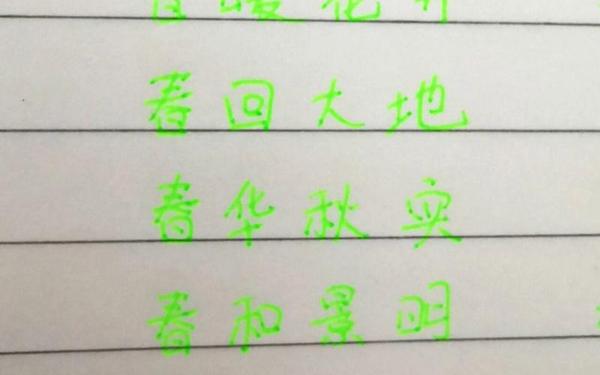 春暖花开
春回大地
春华秋实
春和景明